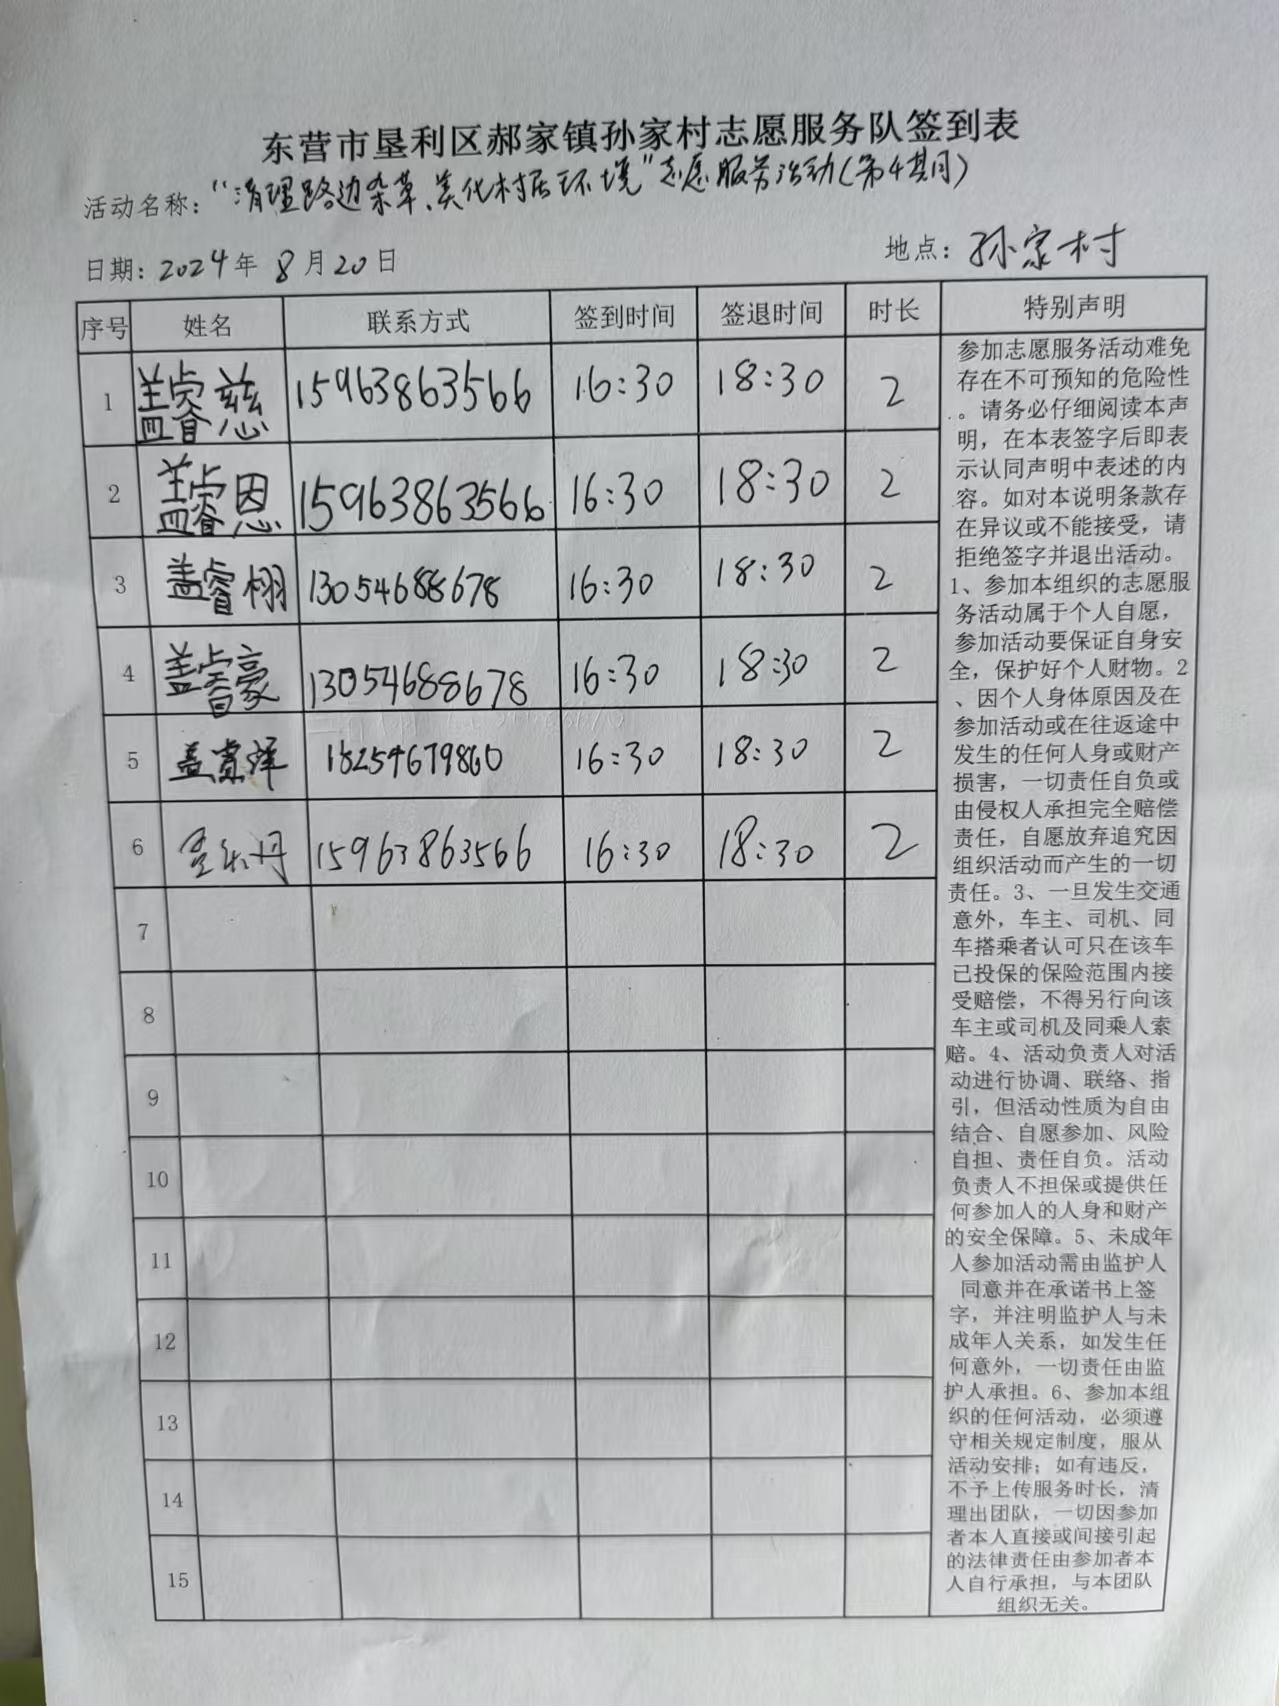 东营市垦利区郝家镇孙家村志愿服务队签到表
活动名称："清理路边杂草、美化村居环境"志愿服务活动(第4期)
日期：2024年8月20日 地点：孙家村
序号 姓名 联系方式 签到时间 签退时间 时长 特别声明
1 盖睿慈 15963863566 16:30 18:30 2
2 盖睿恩 15963863566 16:30 18:30 2
3 盖睿栩 13054688678 16:30 18:30 2
4 盖睿豪 13054688678 16:30 18:30 2
5 盖 洋 18254679860 16:30 18:30 2
6 丹 15963863566 16:30 18:30 2
7
8
9
10
11
12
13
14
15
参加志愿服务活动难免
存在不可预知的危险性
。请务必仔细阅读本声
明，在本表签字后即表
示认同声明中表述的内
容。如对本说明条款存
在异议或不能接受，请
拒绝签字并退出活动。
1、参加本组织的志愿服
务活动属于个人自愿，
参加活动要保证自身安
全，保护好个人财物。2
、因个人身体原因及在
参加活动或在往返途中
发生的任何人身或财产
损害，一切责任自负或
由侵权人承担完全赔偿
责任，自愿放弃追究因
组织活动而产生的一切
责任。3、一旦发生交通
意外，车主、司机、同
车搭乘者认可只在该车
已投保的保险范围内接
受赔偿，不得另行向该
车主或司机及同乘人索
赔。4、活动负责人对活
动进行协调、联络、指
引，但活动性质为自由
结合、自愿参加、风险
自担、责任自负。活动
负责人不担保或提供任
何参加人的人身和财产
的安全保障。5、未成年
人参加活动需由监护人
同意并在承诺书上签
字，并注明监护人与未
成年人关系，如发生任
何意外，一切责任由监
护人承担。6、参加本组
织的任何活动，必须遵
守相关规定制度，服从
活动安排；如有违反，
不予上传服务时长，清
理出团队，一切因参加
者本人直接或间接引起
的法律责任由参加者本
人自行承担，与本团队
组织无关。